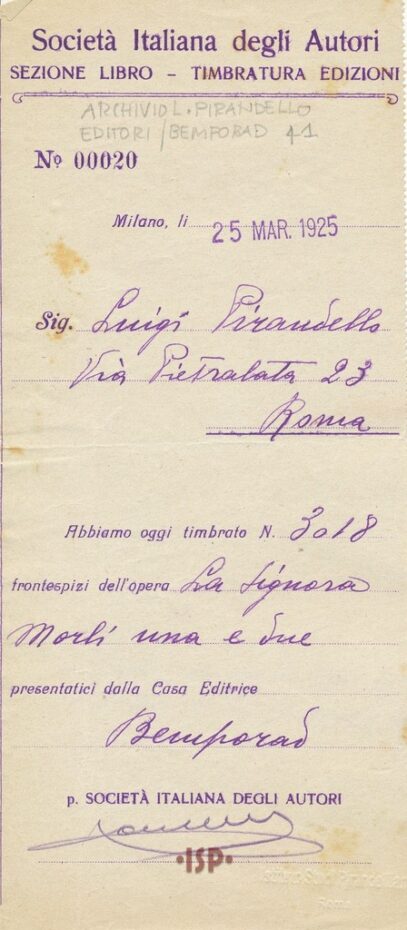 Società Italiana degli Autori
SEZIONE LIBRO - TIMBRATURA EDIZIONI
ARCHIVIO L. PIRANDELLO
EDITORI/BEMPORAD 41
Nº 00020
Milano, li 25 MAR. 1925
Sig. Luigi Pirandello
Via Pietralata 23
Roma
Abbiamo oggi timbrato N. 3018
frontespizi dell'opera La Signora
Morli una e due
presentatici dalla Casa Editrice
Bemporad
p. SOCIETÀ ITALIANA DEGLI AUTORI
·ISP·